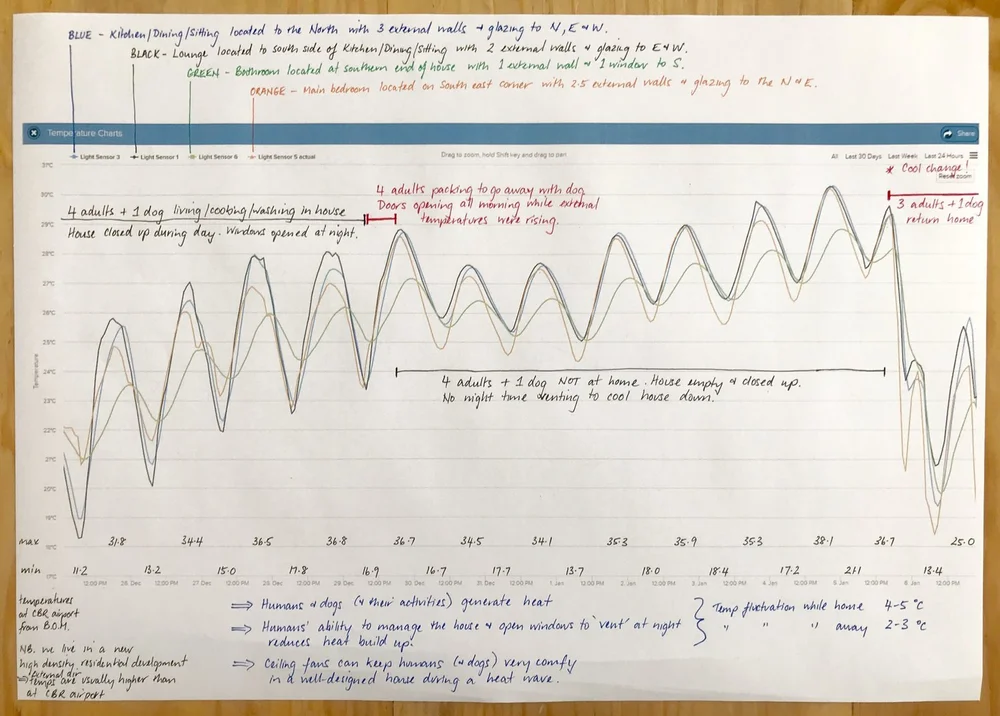 BLUE - Kitchen/Dining/Sitting located to the North with 3 external walls & glazing to N, E & W.
BLACK - Lounge located to south side of Kitchen/Dining/Sitting with 2 external walls & glazing to E & W.
GREEN - Bathroom located at southern end of house with 1 external wall & 1 window to S.
ORANGE - Main bedroom located on South east corner with 2.5 external walls & glazing to the N & E.
Temperature Charts
Share
Light Sensor 3 Light Sensor 1 Light Sensor 6 Light Sensor 5 actual
Drag to zoom, hold Shift key and drag to pan
All Last 30 Days Last Week Last 24 Hours
* Cool change!
Reset zoom
4 adults + 1 dog living/cooking/washing in house
House closed up during day. Windows opened at night.
4 adults packing to go away with dog
Doors opening all morning while external
temperatures were rising.
3 adults + 1 dog
return home
31°C
30°C
29°C
28°C
27°C
26°C
25°C
24°C
23°C
22°C
21°C
20°C
19°C
18°C
17°C
Temperature
4 adults + 1 dog NOT at home. House empty & closed up.
No night time venting to cool house down.
max 31.8 34.4 36.5 36.8 36.7 34.5 34.1 35.3 35.9 35.3 38.1 36.7 25.0
min 11.2 13.2 15.0 17.8 16.9 16.7 17.7 13.7 18.0 18.4 17.2 21.1 13.4
12:00 PM 26. Dec 12:00 PM 27. Dec 12:00 PM 28. Dec 12:00 PM 29. Dec 12:00 PM 30. Dec 12:00 PM 31. Dec 12:00 PM 1. Jan 12:00 PM 2. Jan 12:00 PM 3. Jan 12:00 PM 4. Jan 12:00 PM 5. Jan 12:00 PM 6. Jan 12:00 PM
temperatures
at CBR airport
from B.O.M.
NB. we live in a new
high density, residential development
⇒ external air temps are usually higher than
at CBR airport
⇒ Humans & dogs (& their activities) generate heat
⇒ Humans' ability to manage the house & open windows to 'vent' at night
reduces heat build up.
⇒ Ceiling fans can keep humans (& dogs) very comfy
in a well-designed house during a heat wave.
Temp fluctuation while home 4-5 °C
" " " away 2-3 °C